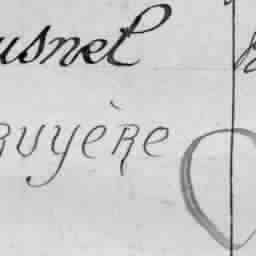 usnel
ruyère